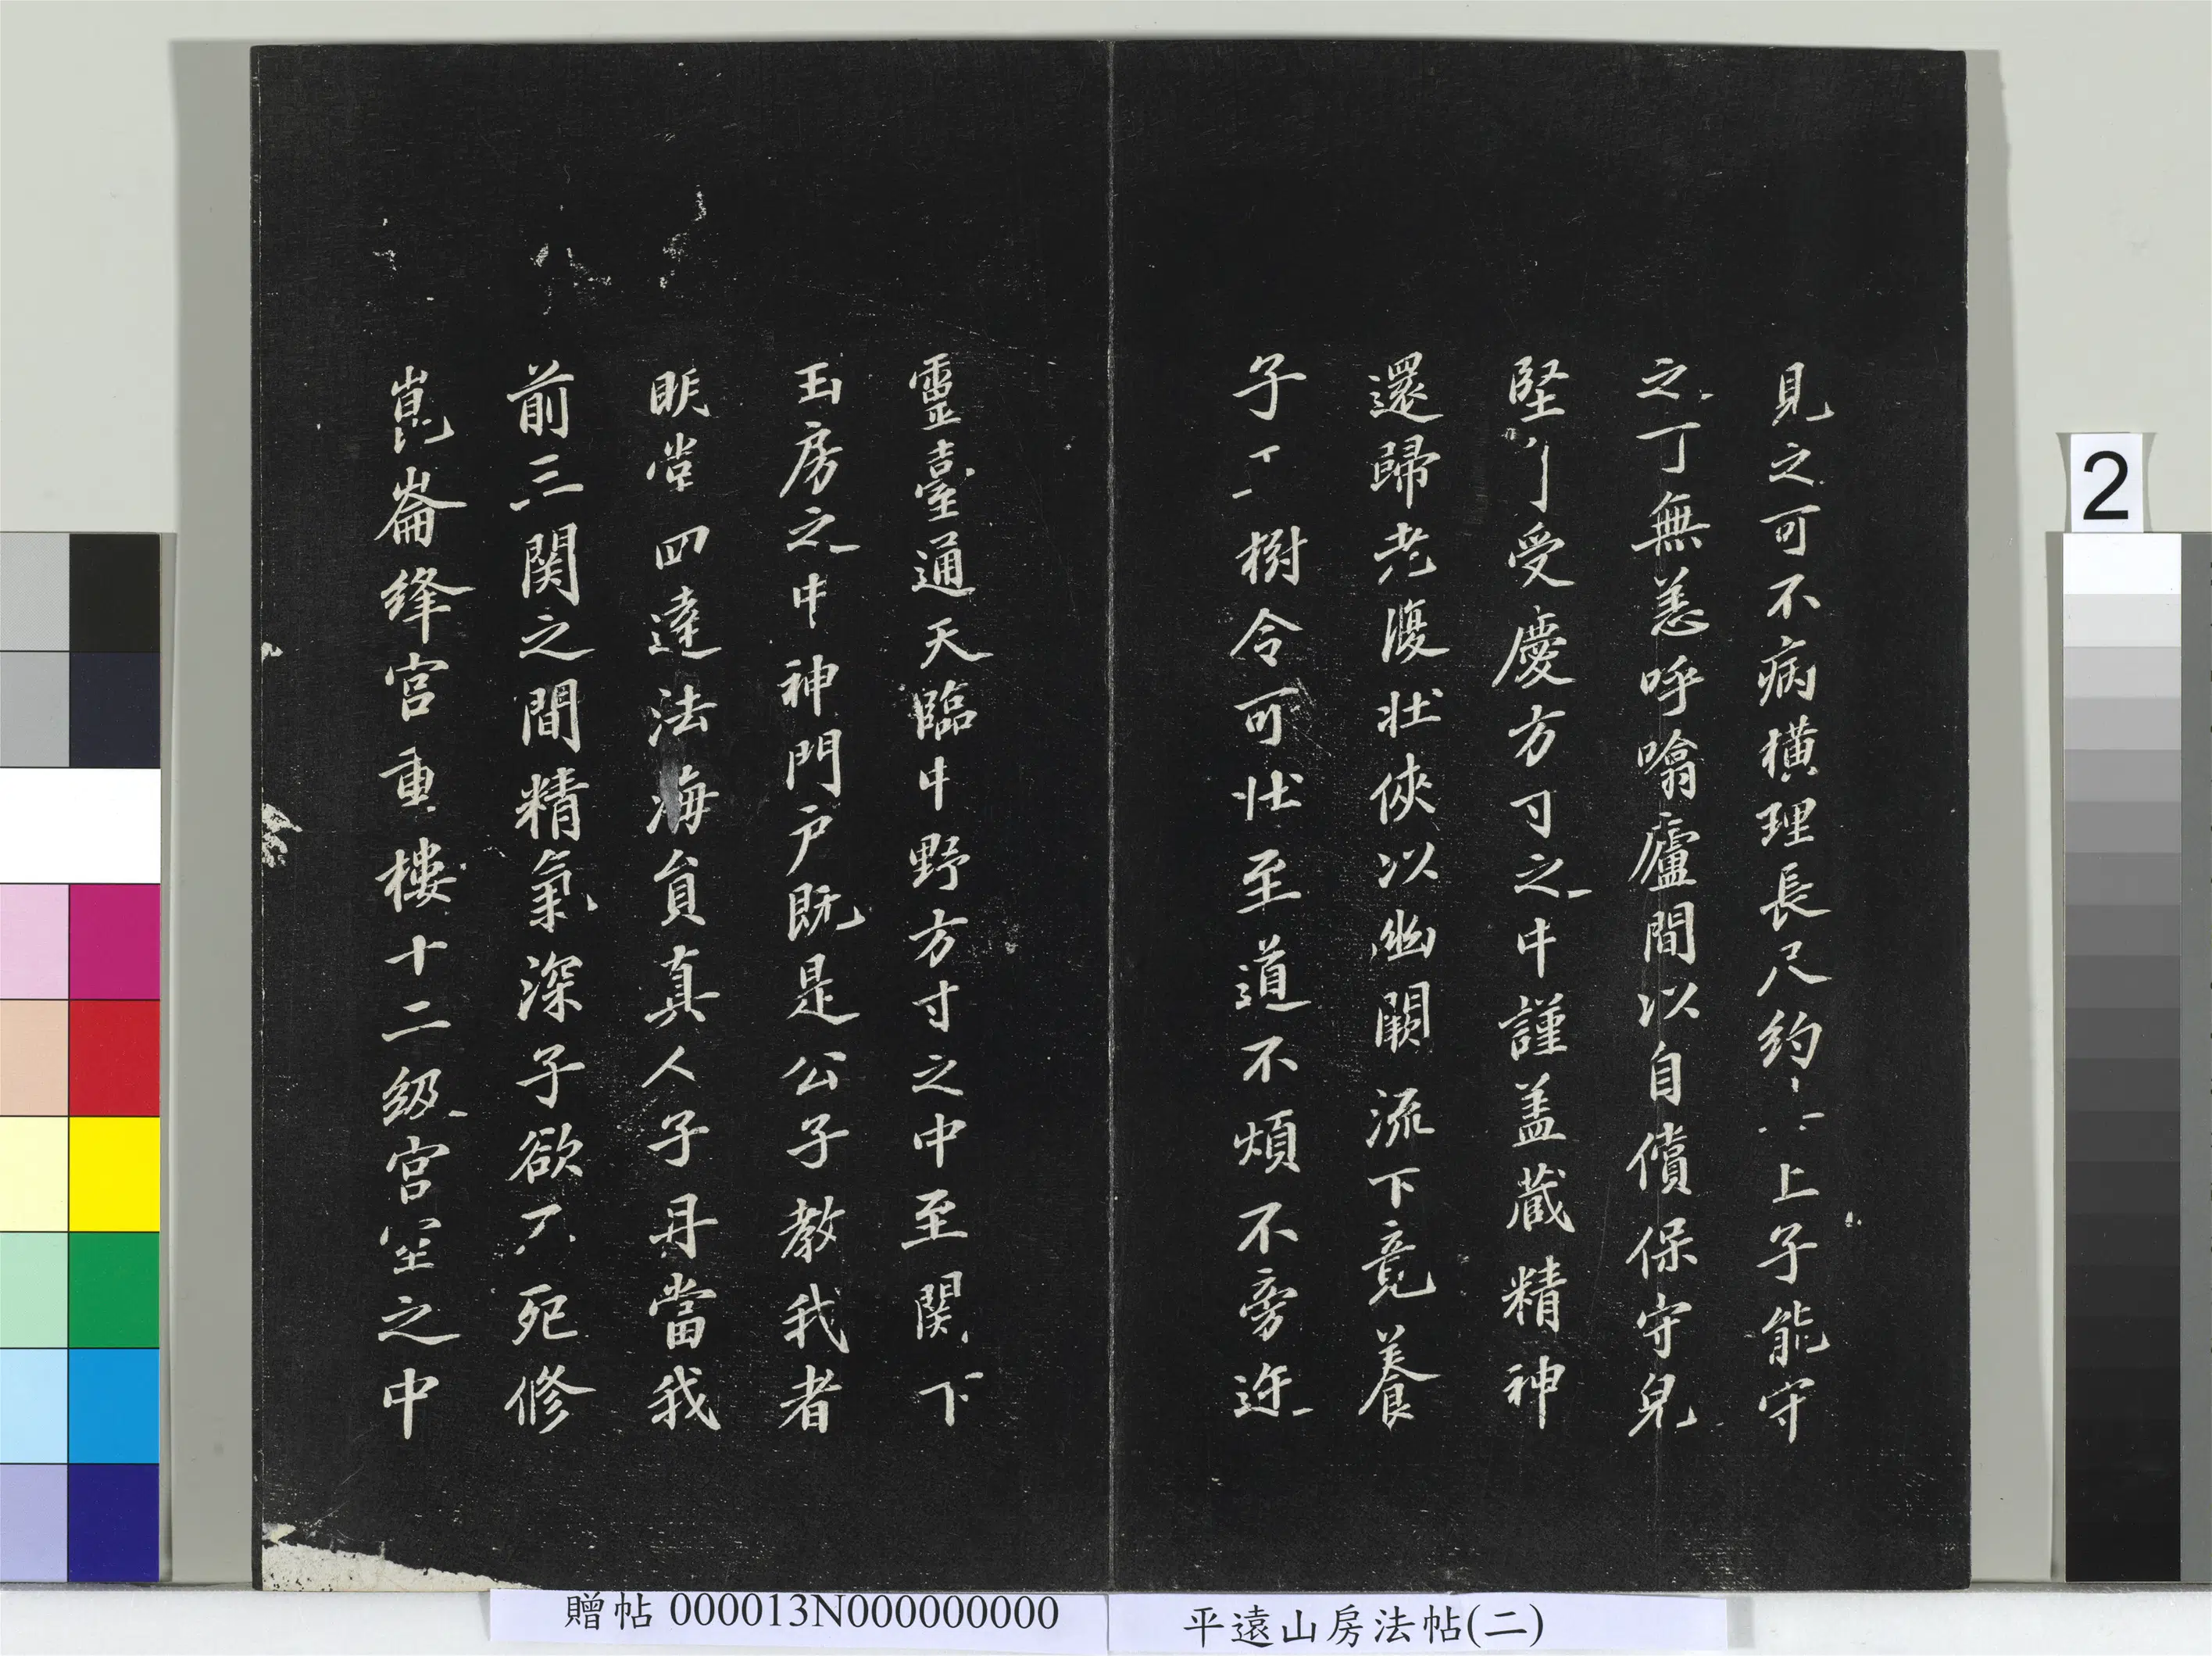 見之可不病橫理長尺約上子能守
之可無恙呼噏廬間以自償保守皃
堅受慶方寸之中謹盖藏精神
還歸老復壯俠以幽闕流下竟養
子樹令可壯至道不煩不旁迕
靈臺通天臨中野方寸之中至関下
玉房之中神門戶既是公子教我者
眀堂四達法海負真人子丹當我
前三関之間精氣深子欲不死修
崑崙絳宮重樓十二級宮室之中
2
贈帖 000013N000000000
平遠山房法帖(二)